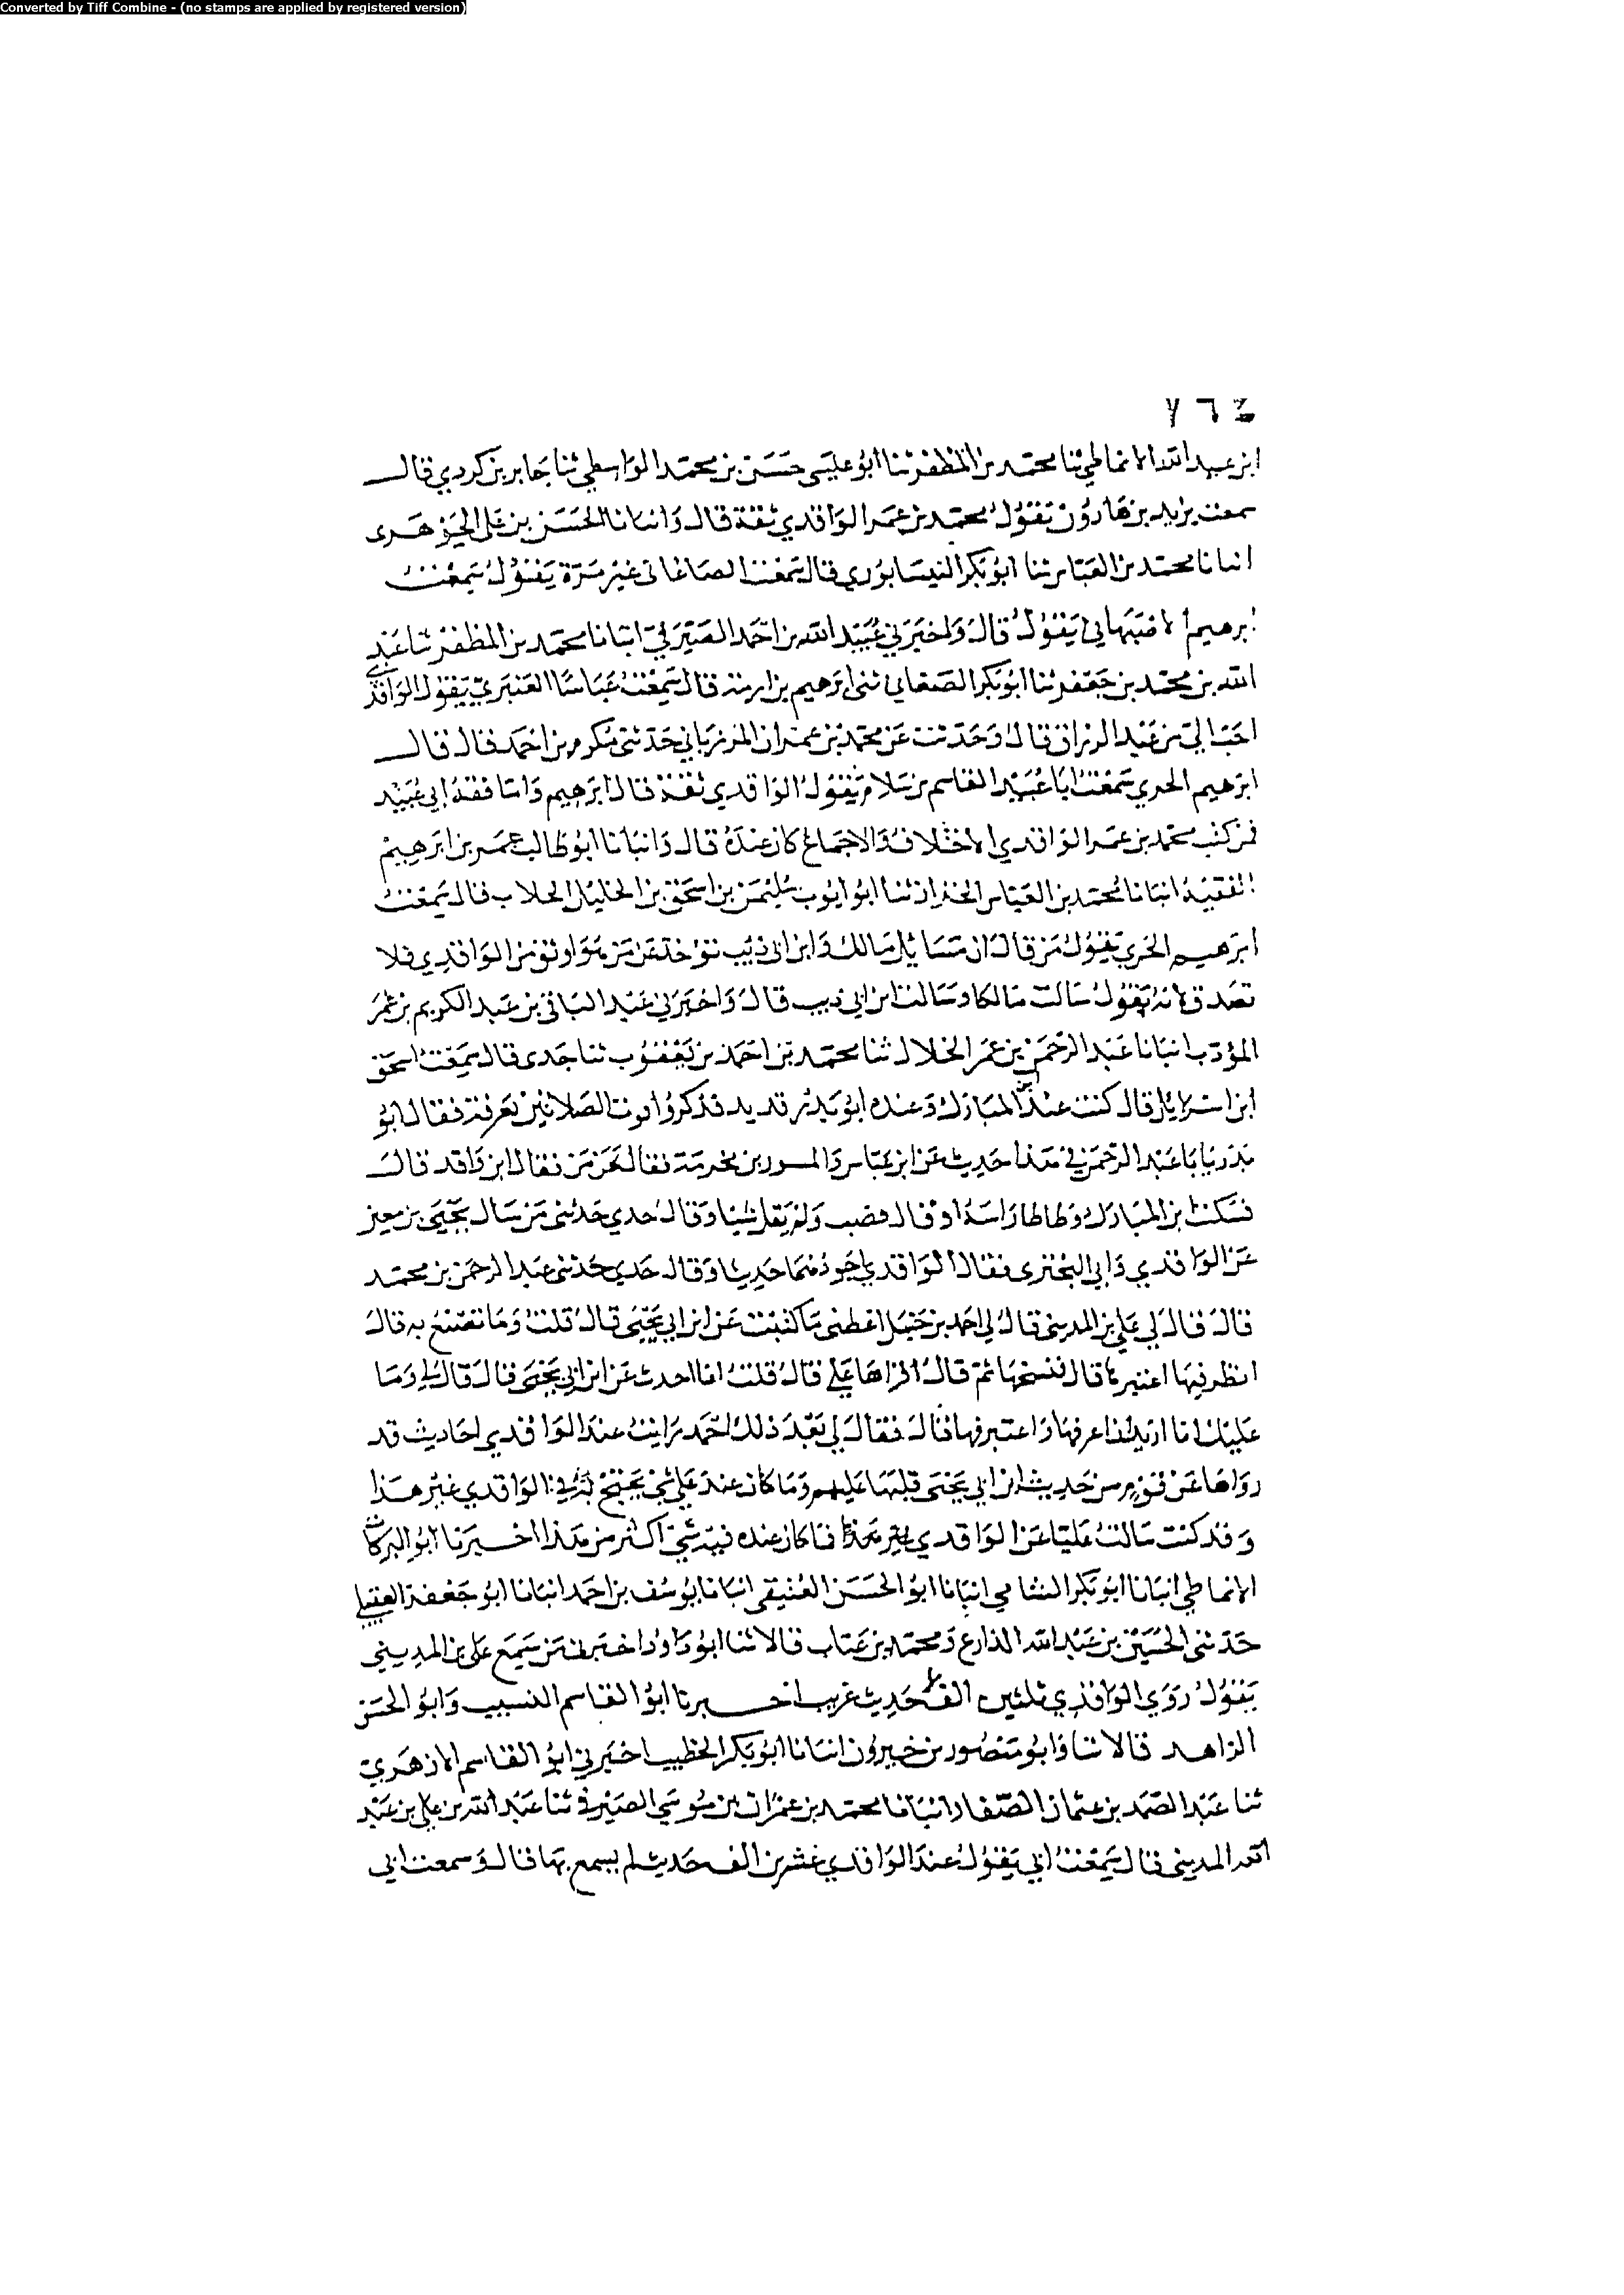 Converted by Tiff Combine - (no stamps are applied by registered version)
٧٦٤
ابن عبيد الله الانماطي ثنا محمد بن المظفر ثنا ابو عيسى حسن بن محمد الواسطي ثنا جابر بن كردي قال
سمعت يزيد بن هارون يقول محمد بن عمر الواقدي ثقة قال وانبانا الحسن بن على الجوهرى
انبانا محمد بن العباس ثنا ابو بكر النيسابوري قال سمعت الصاغانى غير مرة يقول سمعت
ابرهيم الاصبهاني يقول قال واخبرني عبيد الله بن احمد الصيرفي انبانا محمد بن المظفر ثنا عبد
الله بن محمد بن جعفر ثنا ابو بكر الصغاني ثنى ابرهيم بن ارمة قال سمعت عباسا العنبري يقول الواقدي
احب الي من عبد الرزاق قال وحدثت عن محمد بن عمران المرزباني حدثنى مكرم بن احمد قال قال
ابرهيم الحربي سمعت ابا عبيد القاسم بن سلام يقول الواقدي ثقة قال ابرهيم واما فقه ابي عبيد
فمن كتب محمد بن عمر الواقدي الاختلاف والاجماع كان عنده قال وانبانا ابو طالب عمر بن ابرهيم
الفقيه انبانا محمد بن العباس الخزاز ثنا ابو ايوب سليمن بن اسحق بن الخليل الجلاب قال سمعت
ابرهيم الحربي يقول من قال ان مسائل مالك وابن ابى ذيب توخذ عن من هو اوثق من الواقدي فلا
تصدق لانه يقول سالت مالكا وسالت ابن ابي ذيب قال واخبرني عبد الباقي بن عبد الكريم بن عمر
المؤدب انبانا عبد الرحمن بن عمر الخلال ثنا محمد بن احمد بن يعقوب ثنا جدى قال سمعت اسحق
ابن اسرايل قال كنت عند ابن المبارك وعنده ابو بدر قديد فذكروا قوت الصلاتين بعرفة فقال ابو
بدر يا با عبد الرحمن في هذا حديث عن ابن عباس والمسور بن مخرمة فقال عن من فقال ابن واقد قال
فسكت ابن المبارك وطاطا راسه او قال فصب ولم يقل شيئا وقال جدي حدثنى من سال يحيى بن معين
عن الواقدي وابي البخترى فقال الواقدي اجودهما حديثا وقال جدي حدثنى عبد الرحمن بن محمد
قال قال لي علي بن المديني قال لي احمد بن حنبل اعطنى ما كتبت عن ابن ابي يحيى قال قلت وما تصنع به قال
انظر فيها اعتبرها قال ففتحها ثم قال اقراها علي قال قلت انا احدث عن ابن ابي يحيى قال قال لي وما
عليك انا اريد ان اعرفها واعتبر فيها قال فقال لي بعد ذلك احمد رايت عند الواقدي احاديث قد
رواها عن قوم من حديث ابن ابي يحيى قلبها عليهم وما كان عند علي شي يحتج به في الواقدي غير هذا
وقد كنت سالت عليا عن الواقدي فما كان عنده فيه شي اكثر من هذا اخبرنا ابو البركات
الانماطي انبانا ابو بكر الشامي انبانا ابو الحسن العتيقى انبانا يوسف بن احمد انبانا ابو جعفر العقيلي
حدثنى الحسين بن عبد الله الذارع ومحمد بن عتاب قالا ثنا ابو داود اخبرنى من سمع على بن المديني
يقول روى الواقدي ثلثين الف حديث غريب اخبرنا ابو القاسم النسيب وابو الحسن
الزاهد قالا ثنا وابو منصور بن خيرون انبانا ابو بكر الخطيب اخبرني ابو القاسم الازهري
ثنا عبد الصمد بن عثمان الصفار انبانا محمد بن عمران بن موسي الصيرفي ثنا عبد الله بن علي بن عبد
الله المديني قال سمعت ابي يقول عند الواقدي عشرين الف حديث لم يسمع بها قال وسمعت ابى